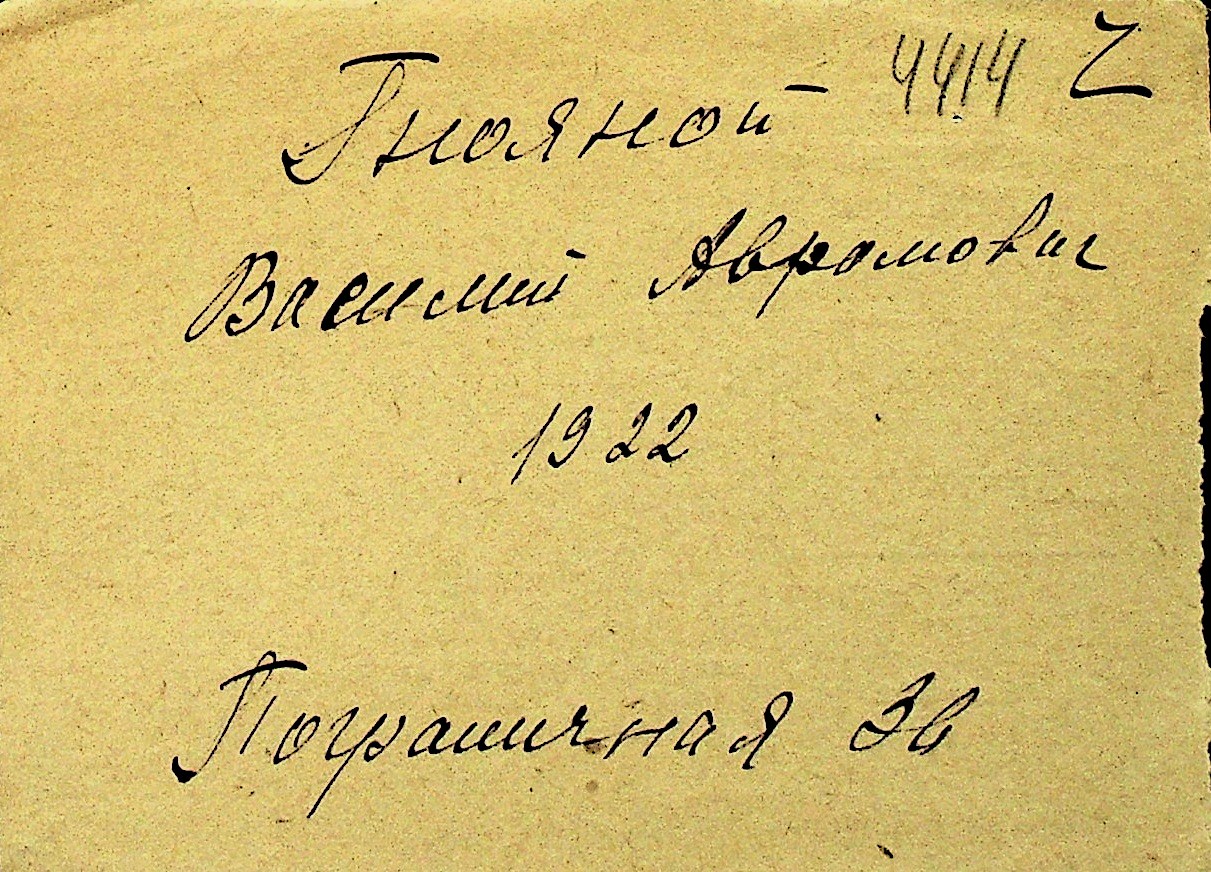 Гнояной 4414 Ч
Василий Авромович
1922
Пограничная 3в